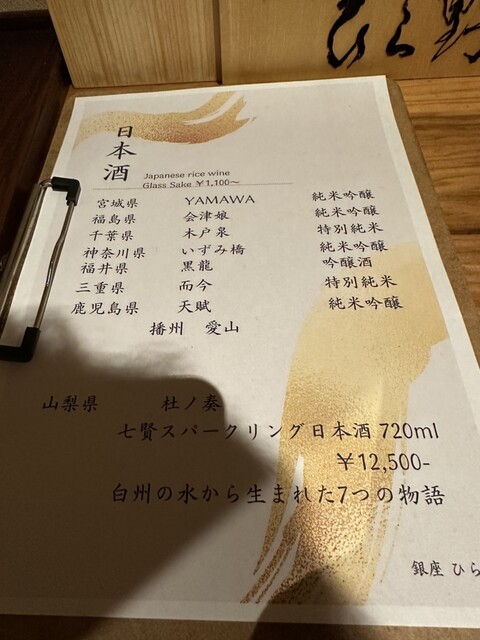 ひら野
日本酒
Japanese rice wine
Glass Sake ¥1,100～
宮城県 YAMAWA 純米吟醸
福島県 会津娘 純米吟醸
千葉県 木戸泉 特別純米
神奈川県 いずみ橋 純米吟醸
福井県 黒龍 吟醸酒
三重県 而今 特別純米
鹿児島県 天賦 純米吟醸
播州 愛山
山梨県 杜ノ奏
七賢スパークリング日本酒 720ml
¥12,500-
白州の水から生まれた7つの物語
銀座 ひら